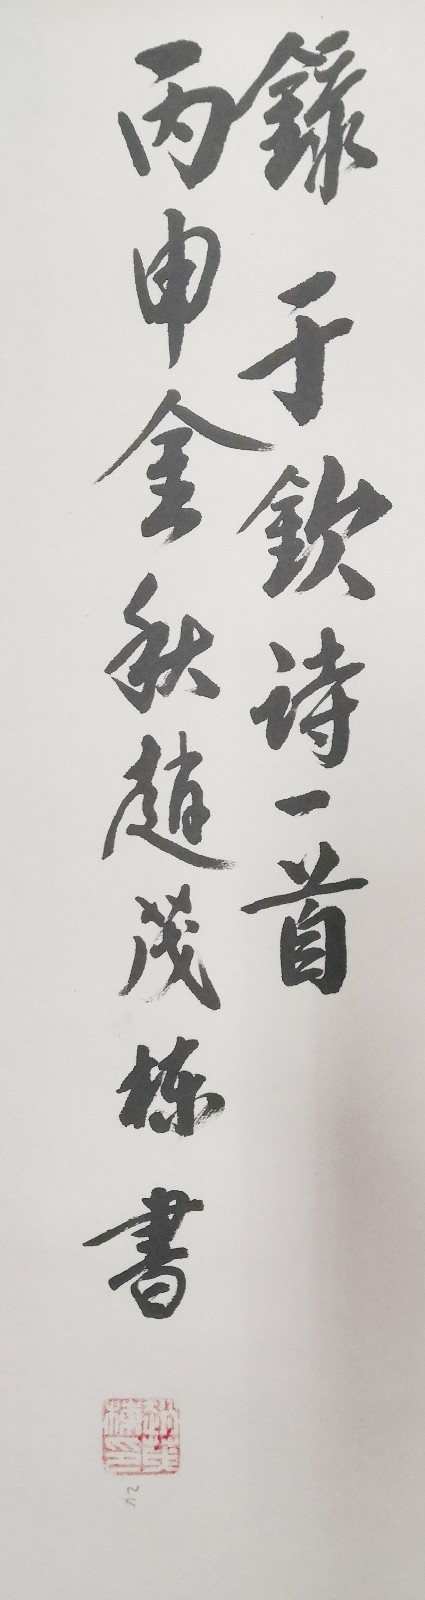 錄于欽诗一首
丙申金秋趙茂栋書